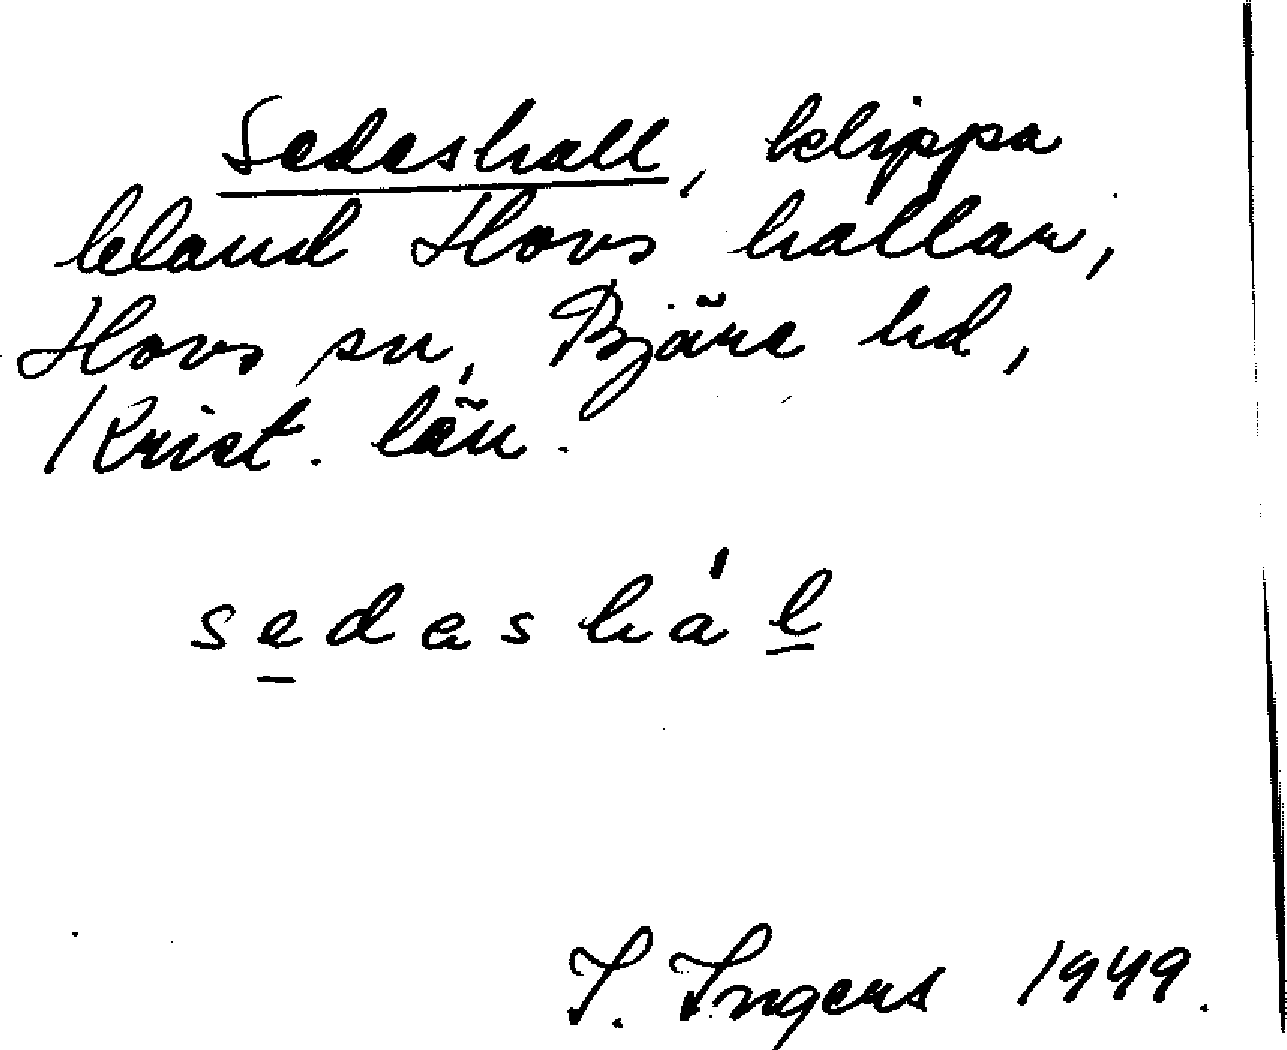 Sedeshall, klippa
bland Hovs hallar,
Hovs sn, Bjäre hd,
Krist. län.
sedəshál
I. Ingers 1949.